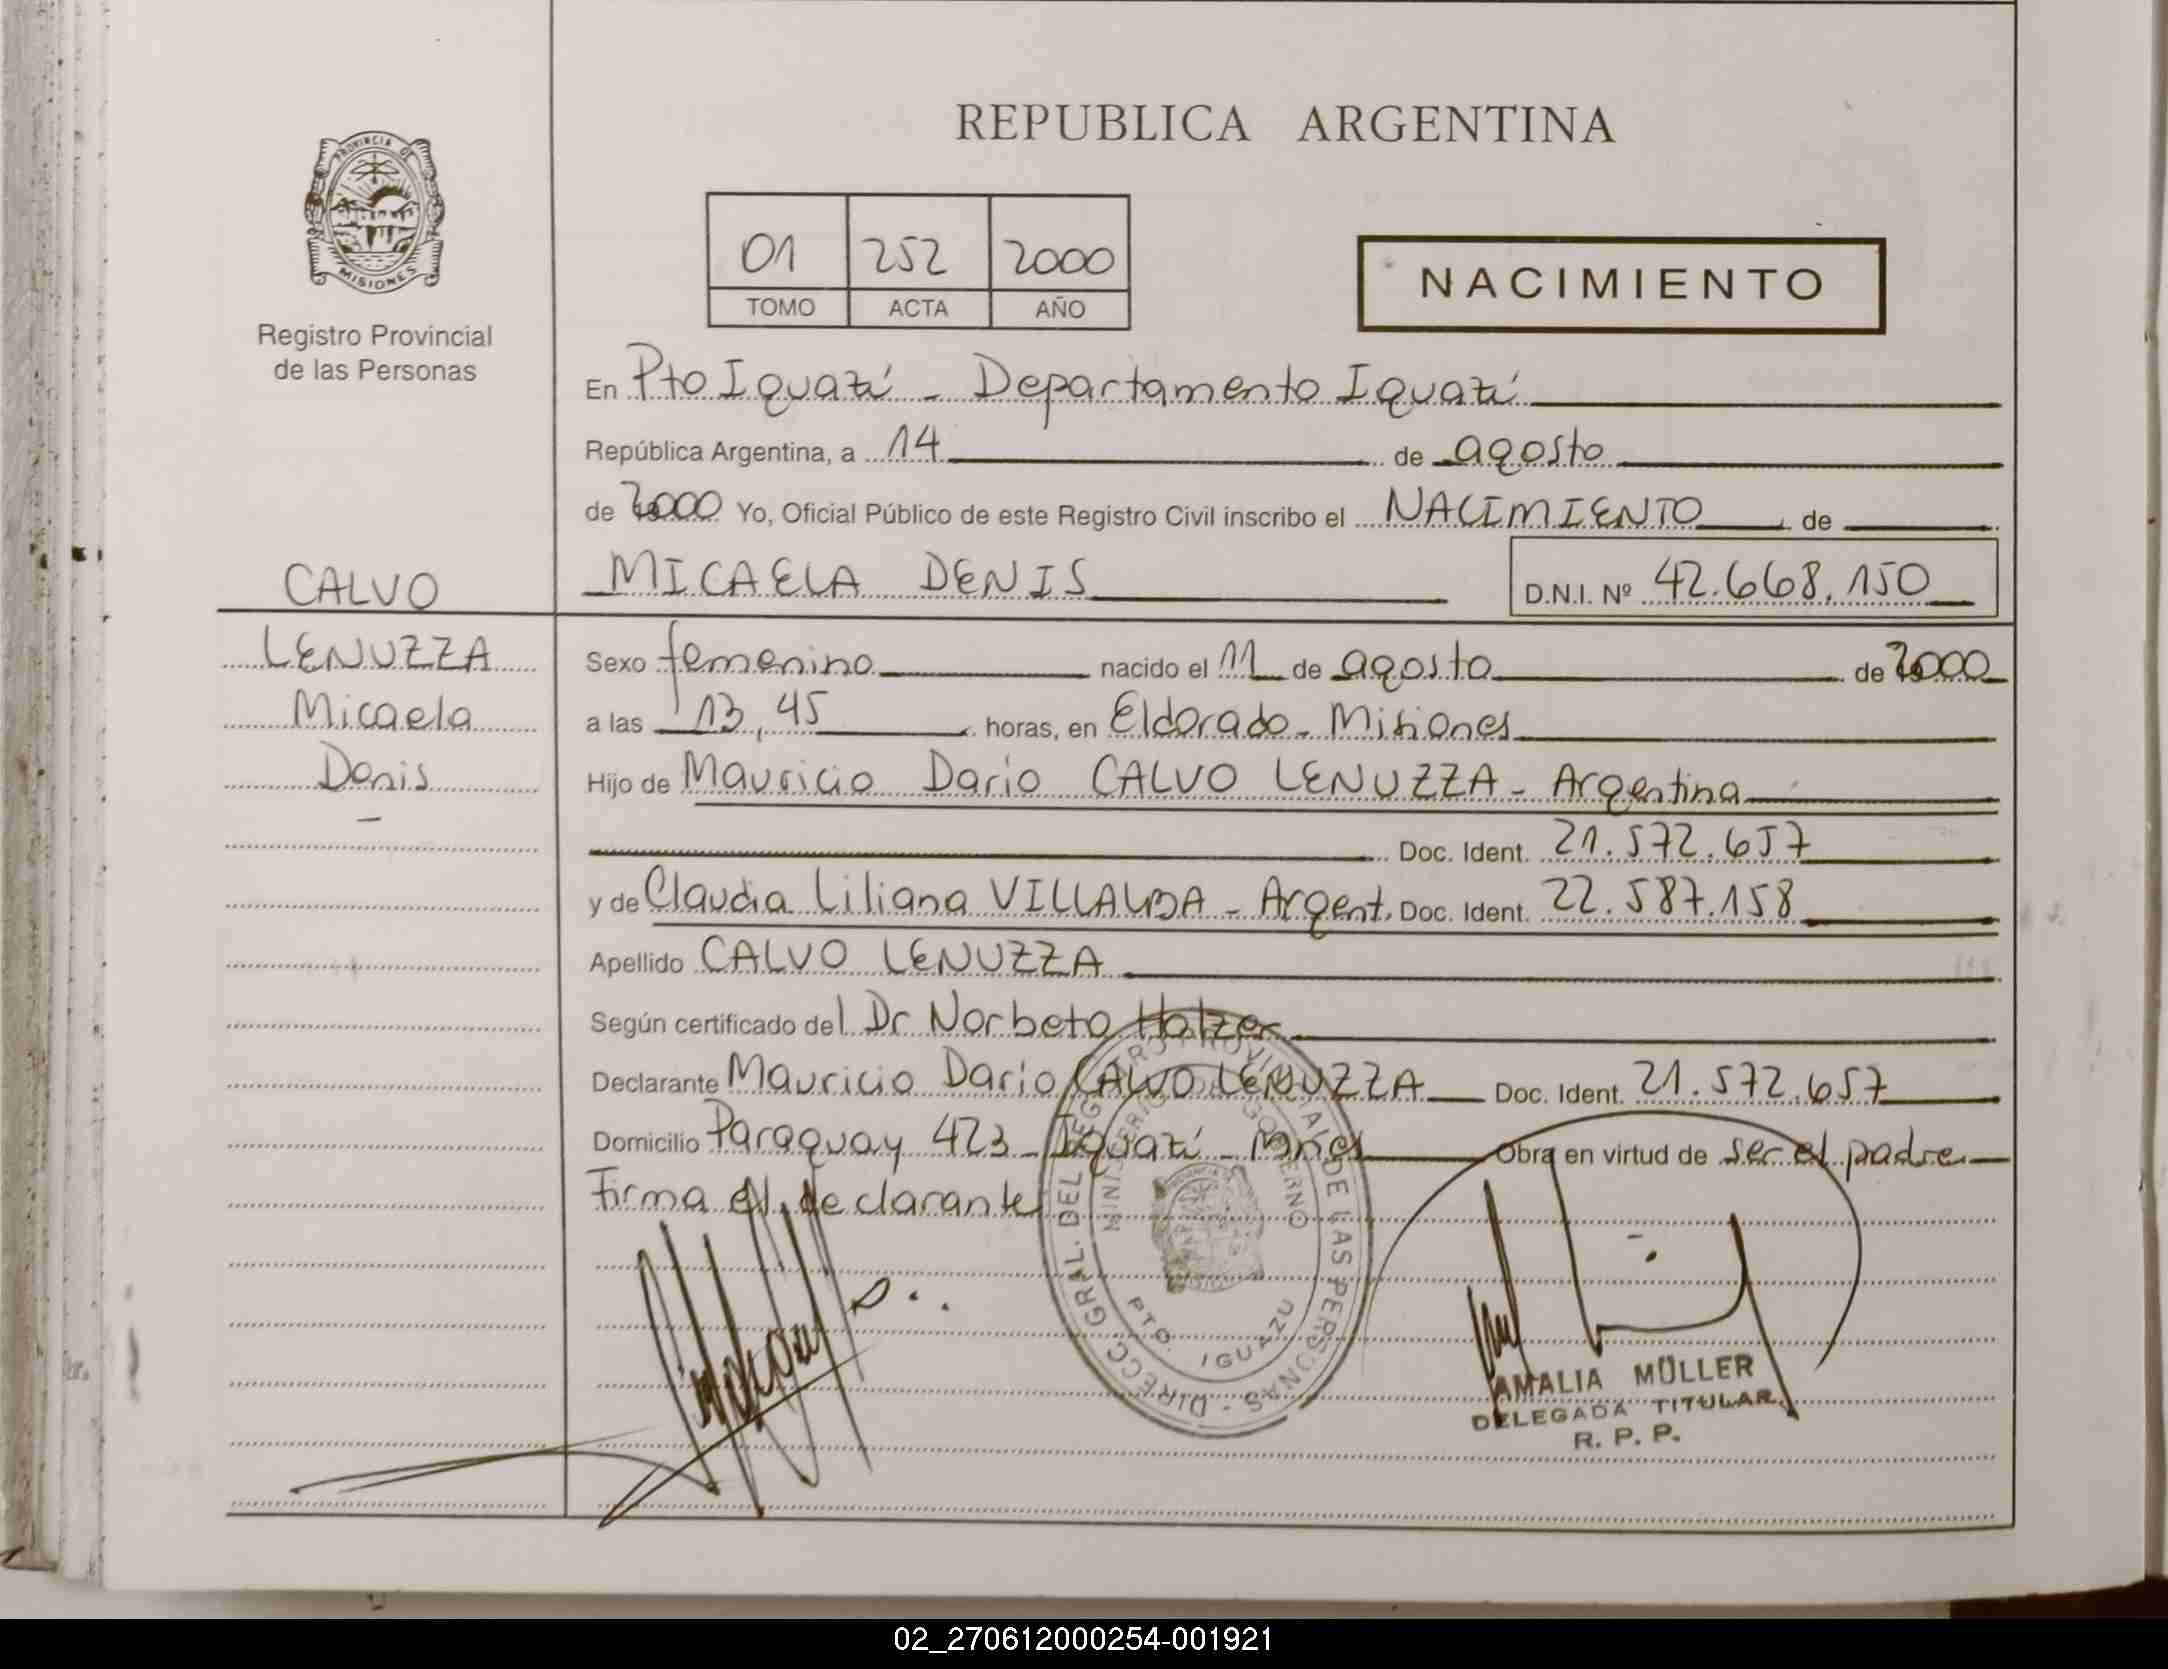 REPUBLICA ARGENTINA
PROVINCIA DE
MISIONES
Registro Provincial
de las Personas
01 252 2000
TOMO ACTA AÑO
NACIMIENTO
En Pto Iguazú - Departamento Iguazú
República Argentina, a 14 de agosto
de 2000 Yo, Oficial Público de este Registro Civil inscribo el NACIMIENTO de
MICAELA DENIS D.N.I. Nº 42.668.150
CALVO
LENUZZA
Micaela
Denis
-
Sexo femenino nacido el 11 de agosto de 2000
a las 13,45 horas, en Eldorado - Misiones
Hijo de Mauricio Darío CALVO LENUZZA - Argentina
Doc. Ident. 21.572.657
y de Claudia Liliana VILLALBA - Argent. Doc. Ident. 22.587.158
Apellido CALVO LENUZZA
Según certificado del Dr Norbeto Holzer
Declarante Mauricio Darío CALVO LENUZZA Doc. Ident. 21.572.657
Domicilio Paraguay 423 - Iguazú - Mnes Obra en virtud de ser el padre
Firma el declarante
DIRECC GRAL. DEL REGISTRO PROVINCIAL DE LAS PERSONAS -
MINISTERIO DE GOBIERNO
PTO. IGUAZU
AMALIA MÜLLER
DELEGADA TITULAR
R. P. P.
02_270612000254-001921